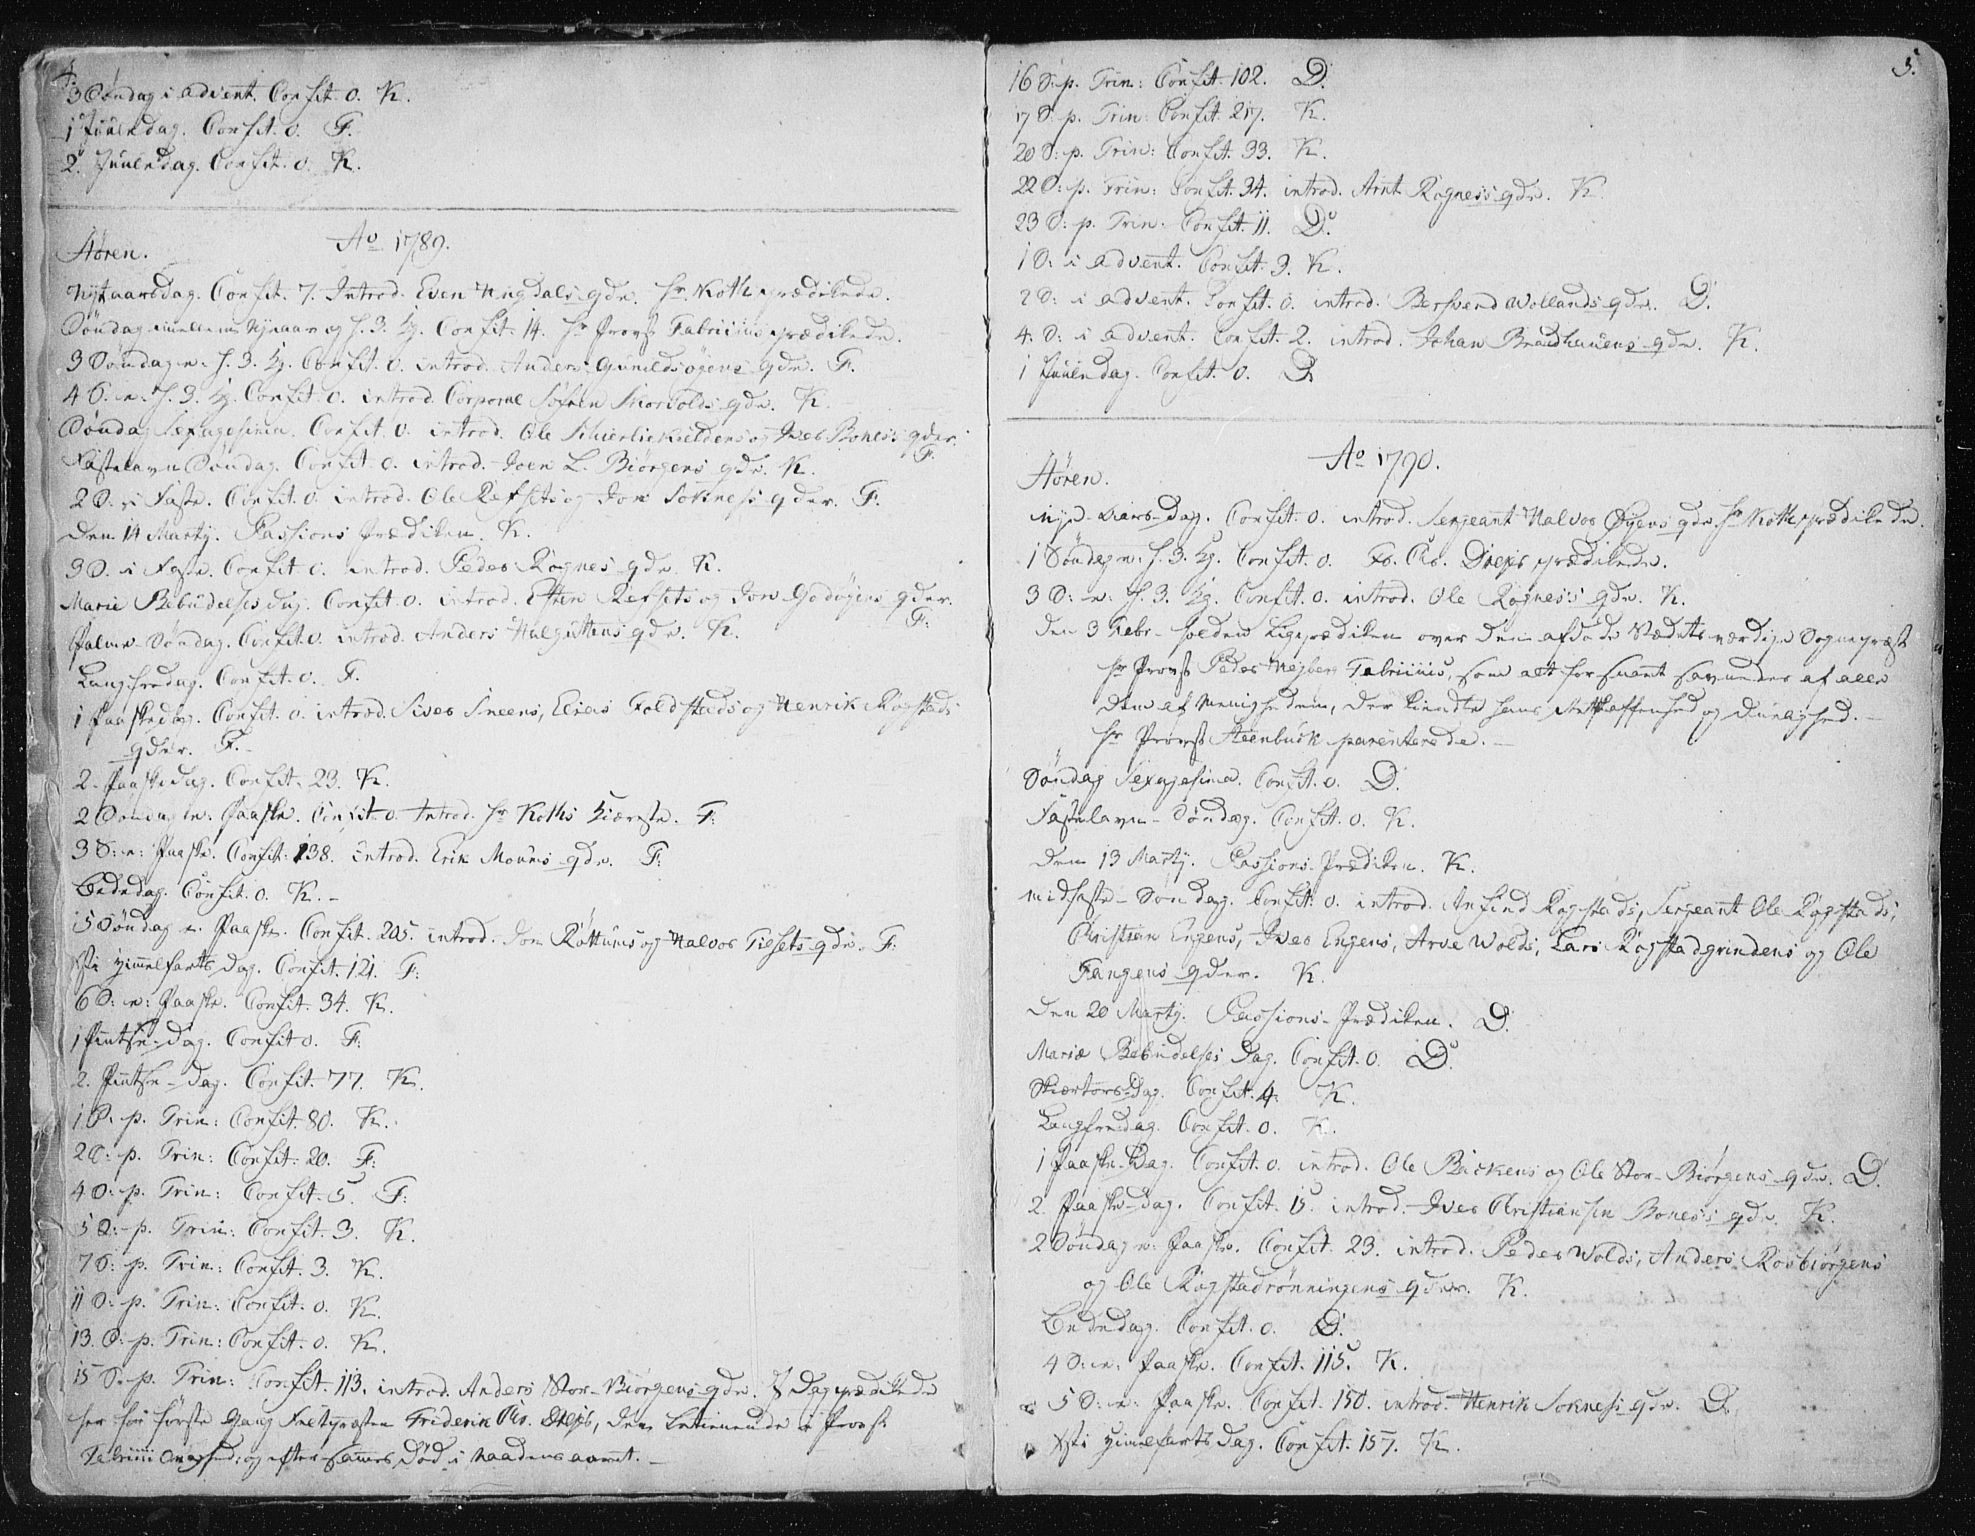 4.
3 Søndag i Advent. Confit. 0. K.
1 Juuledag. Confit. 0. F.
2. Juuledag. Confit. 0. K.
Ao 1789.
Høren.
Nytaarsdag. Confit. 7. Introd. Even Kregdals qde. Hr. Koth prædikede.
Søndag imellem Nytaar og H. 3. Kg. Confit. 14. Hr Provst Fabritius prædikede.
3 Søndag n: H. 3. Kg. Confit. 0. introd. Anders Gunildsøyens qde. F.
4 S. n: H. 3. Kg. Confit. 0. introd. Corporal Søfren Skorvolds qde. K.
Søndag Sexagesima. Confit. 0. introd. Ole Skierliekieldens og Iver Bones's qder. F.
Fastelavn Søndag. Confit. 0. introd. Joen L. Biørgens qde. K.
2 S. i Faste. Confit. 0. introd. Ole Refsets og Jon Soknes's qder. F.
Den 14 Martij. Passions Prædiken. K.
3 S. i Faste. Confit. 0. introd. Peder Rognes qde. K.
Mariæ Bebudelses dag. Confit. 0. introd. Esten Refsets og Jon Godøyens qder. F.
Palme-Søndag. Confit. 0. introd. Anders Halguttens qde. K.
Langfredag. Confit. 0. F.
1 Paaskedag. Confit. 0. introd. Siver Sneens, Elias Foldstads og Henrik Rogstads
qder. F.
2. Paaskedag. Confit. 23. K.
2 Søndag n: Paaske. Confit. 0. Introd. Hr Koths Kiæreste. F.
3 S. n: Paaske. Confit: 138. introd. Erik Mouns qde. F.
Bededag. Confit. 0. K.
5 Søndag n. Paaske. Confit. 205. introd. Jon Røttums og Halvor Tilsets qde. F.
Xsti Himmelfarts Dag. Confit. 121. F.
6 S. n: Paaske. Confit. 34. K.
1 Pintse-Dag. Confit. 0. F.
2. Pintse-dag. Confit. 77. K.
1 S. p. Trin: Confit. 80. K.
2 S. p. Trin: Confit. 20. F.
4 S. p. Trin: Confit. 5. F.
5 S. p. Trin: Confit. 3. K.
7 S. p. Trin: Confit. 3. K.
11 S. p. Trin: Confit. 0. K.
13. S. p. Trin: Confit. 0. K.
15 S. p. Trin: Confit. 113. introd. Anders Stor-Biørgens qde. I Dag prædikede
her for første Gang Feltpræsten Friderik Chr. Drejer, den betienende i Provst
Fabritii og efter sammes Død i Naadens aaret.
5.
16 S. p. Trin: Confit. 102. D.
17 S. p. Trin: Confit. 217. K.
20 S. p. Trin: Confit. 33. K.
22 S. p. Trin: Confit. 34. introd. Arnt Rognes's qde. K.
23 S. p. Trin: Confit. 11. D.
1 S: i Advent. Confit. 3. K.
2 S: i Advent. Confit. 0. introd. Bersvend Wollands qde. D.
4. S: i Advent. Confit. 2. introd. Johan Brandhauens qde. K.
1 Juuledag. Confit. 0. D.
Ao 1790.
Høren.
Nye-Aars-dag. Confit. 0. introd. Sergeant Halvor Øyens qde. Hr Koth prædikede.
1 Søndag n: H. 3. Kg. Confit. 0. Fr. Chr. Drejer prædikede.
3 S: n: H. 3. Kg. Confit. 0. introd. Ole Rognes's qde. K.
Den 3 Febr. holden Ligprædiken over Den afdøde Stædets værdige Sognepræst
Hr Provst Peder Hejberg Fabritius, som alt for snart savnedes af alle
Dem af Menigheden, der kiendte hans Retskaffenhed og Duelighed.
Hr Provst Steenbuck parenterede.
Søndag Sexagesima. Confit. 0. D.
Fastelavn-Søndag. Confit. 0. K.
Den 13 Martij. Passions-Prædiken. K.
Midfaste-Søndag. Confit. 0. introd. Anfind Rogstads, Sergeant Ole Rogstads,
Christian Engens, Iver Engens, Arve Wolds, Lars Rogstadgrindens og Ole
Fangens qder. K.
Den 20 Martij. Passions-Prædiken. D.
Mariæ Bebudelses Dag. Confit. 0. D.
Skiertors-Dag. Confit. 4. K.
Langfredag. Confit. 0. K.
1 Paaske-Dag. Confit. 0. introd. Ole Backens og Ole Stor-Biørgens qde. D.
2. Paaske-dag. Confit. 15. introd. Iver Christiansen Bones's qde. K.
2 Søndag n: Paaske. Confit. 23. introd. Peder Wolds, Anders Rosbiørgens
og Ole Rogstadrønningens qder. K.
Bededag. Confit. 0. D.
4 S: n: Paaske. Confit. 115. K.
5 S: n: Paaske. Confit. 150. introd. Henrik Soknes's qde. D.
Xsti Himelfarts Dag. Confit. 157. K.